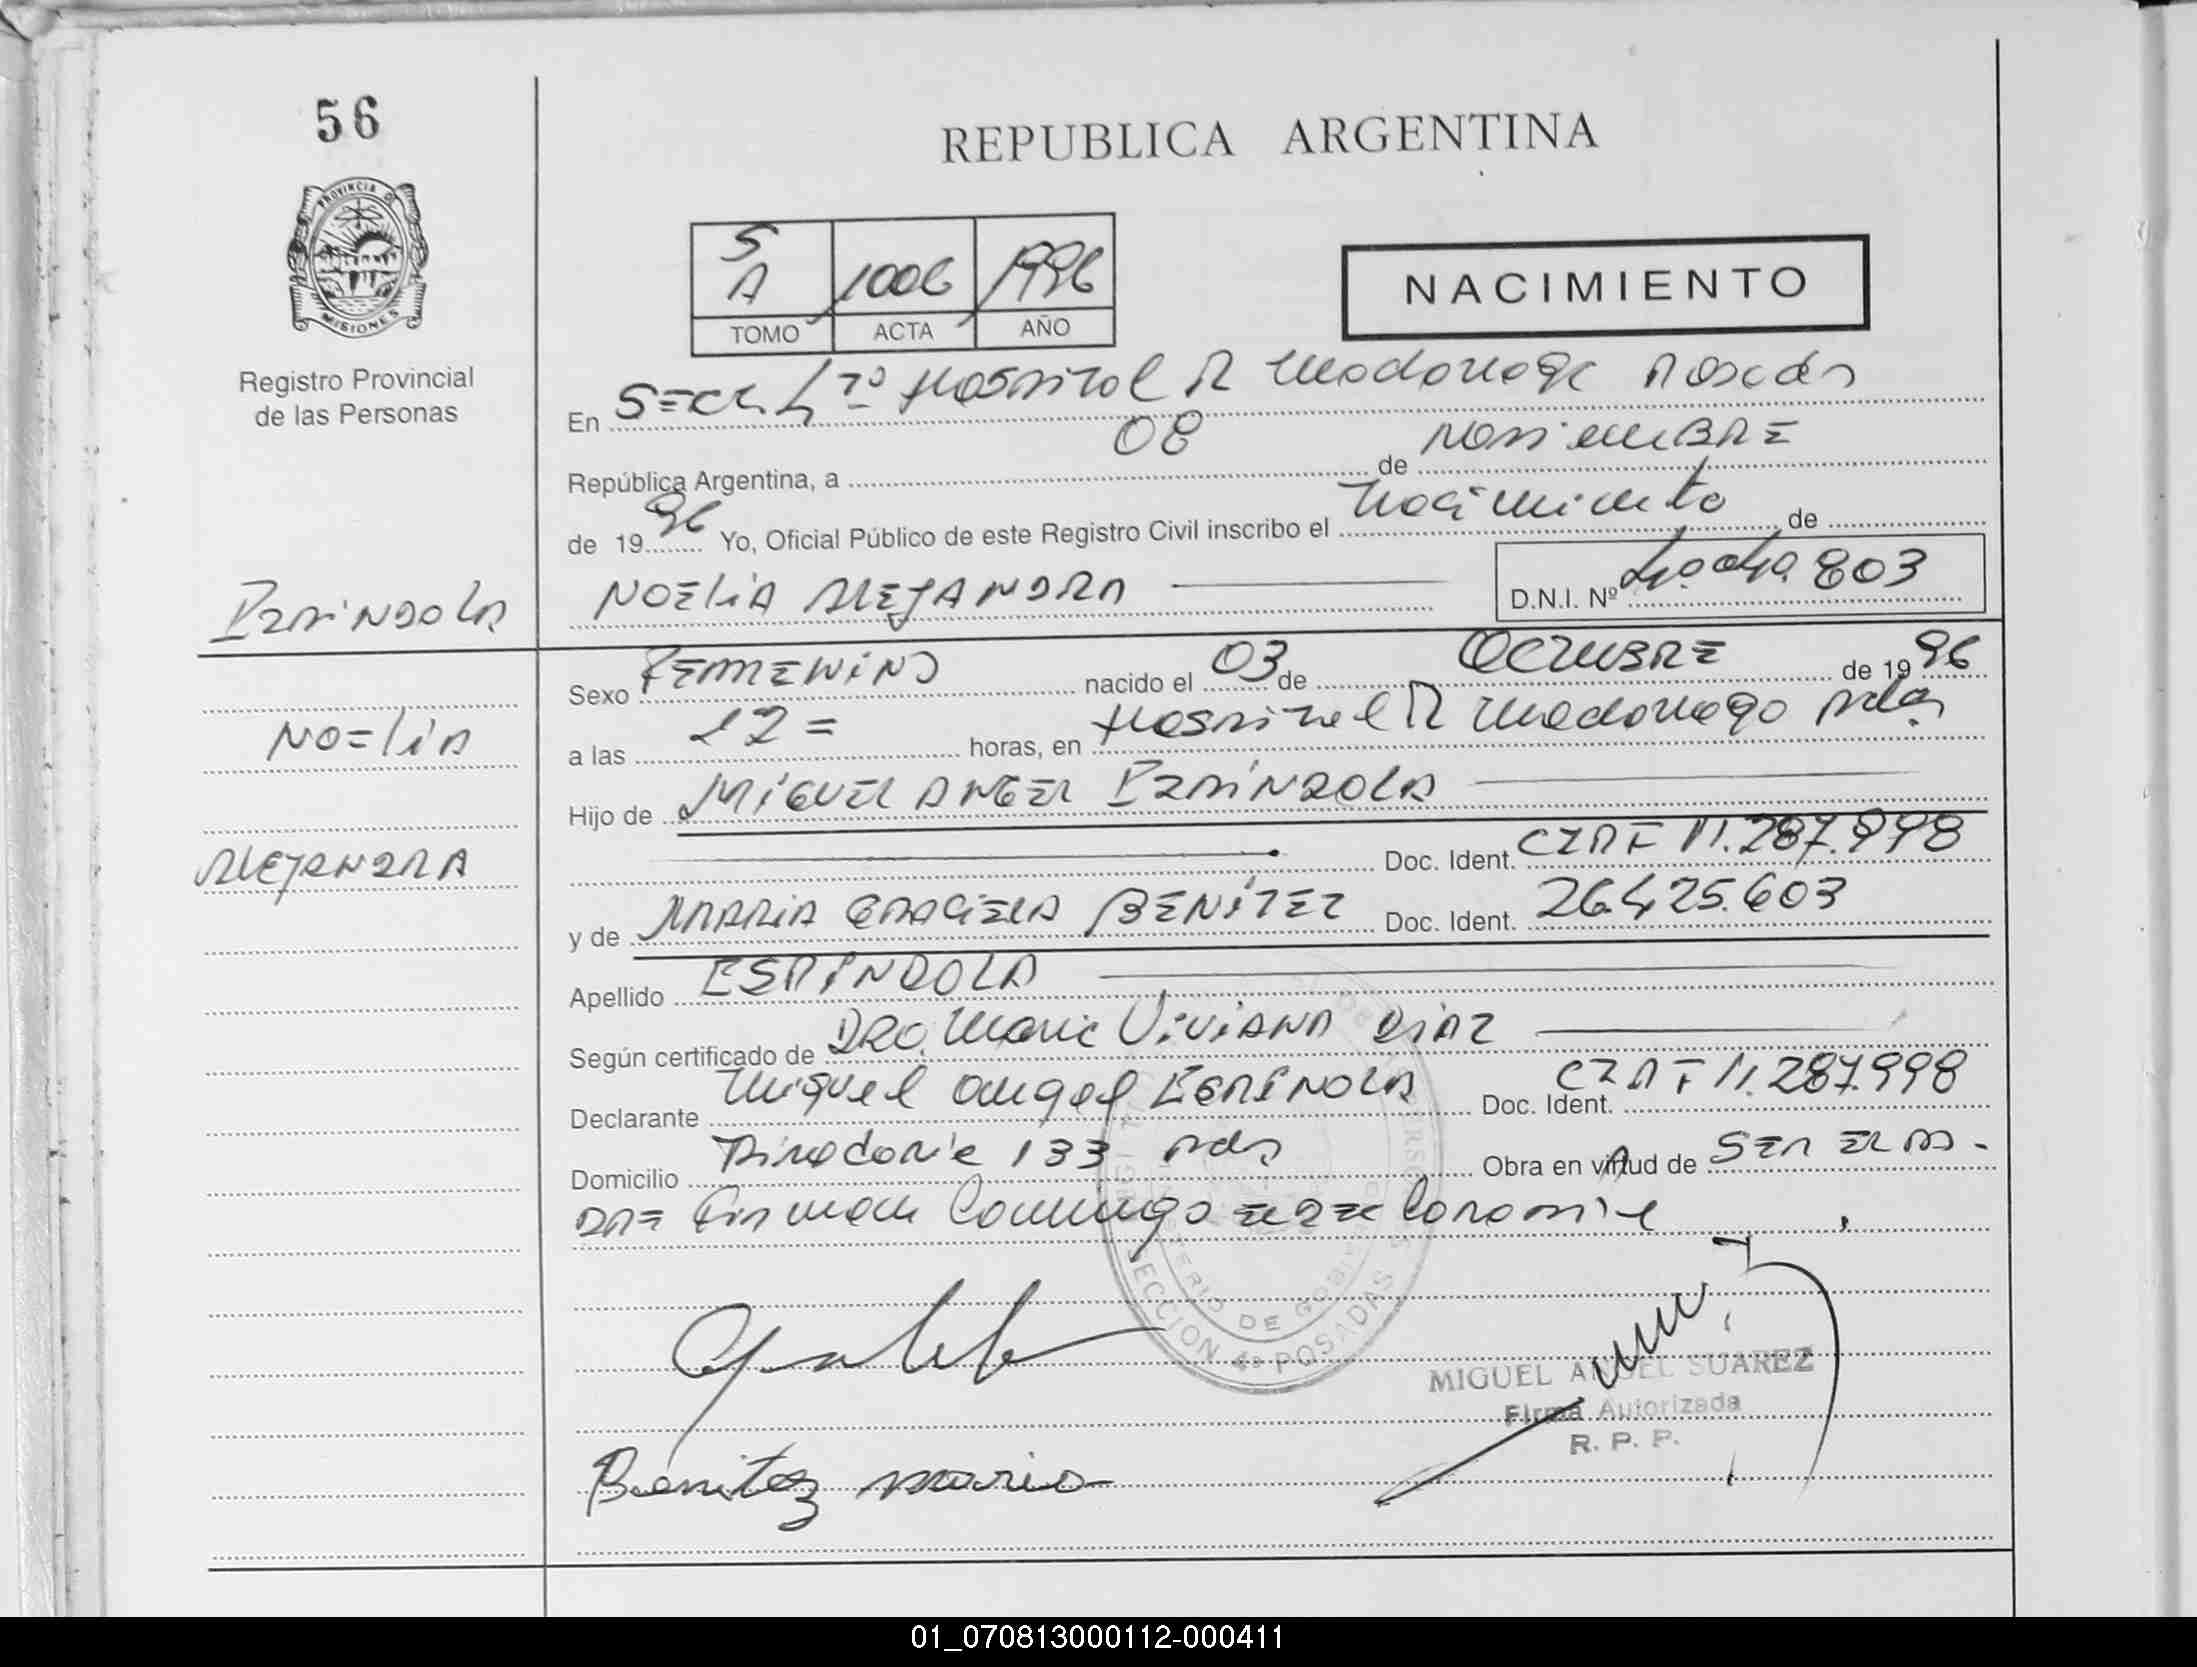 56
PROVINCIA DE
MISIONES
Registro Provincial
de las Personas
REPUBLICA ARGENTINA
5
A 1006 1996
TOMO ACTA AÑO
NACIMIENTO
En Secc. 4ª Hospital R Madariaga Posadas
República Argentina, a 08 de NOVIEMBRE
de 1996 Yo, Oficial Público de este Registro Civil inscribo el nacimiento de
NOELIA ALEJANDRA D.N.I. Nº 40.040.803
ESPINDOLA
NOELIA
ALEJANDRA
Sexo FEMENINO nacido el 03 de OCTUBRE de 1996
a las 12= horas, en Hospital R Madariaga Pdas
Hijo de MIGUEL ANGEL ESPINDOLA
Doc. Ident. 11.287.998
y de MARIA GRACIELA BENITEZ Doc. Ident. 26.425.603
Apellido ESPINDOLA
Según certificado de DRA. Maria VIVIANA DIAZ
Declarante Miguel angel ESPINDOLA Doc. Ident. 11.287.998
Domicilio 133 Pdas Obra en virtud de SER EL PA-
DRE Firman Conmigo
SECCION 4ª POSADAS
MINISTERIO DE GOBIERNO
MIGUEL ANGEL SUAREZ
Firma Autorizada
R. P. P.
Benitez maria
01_070813000112-000411